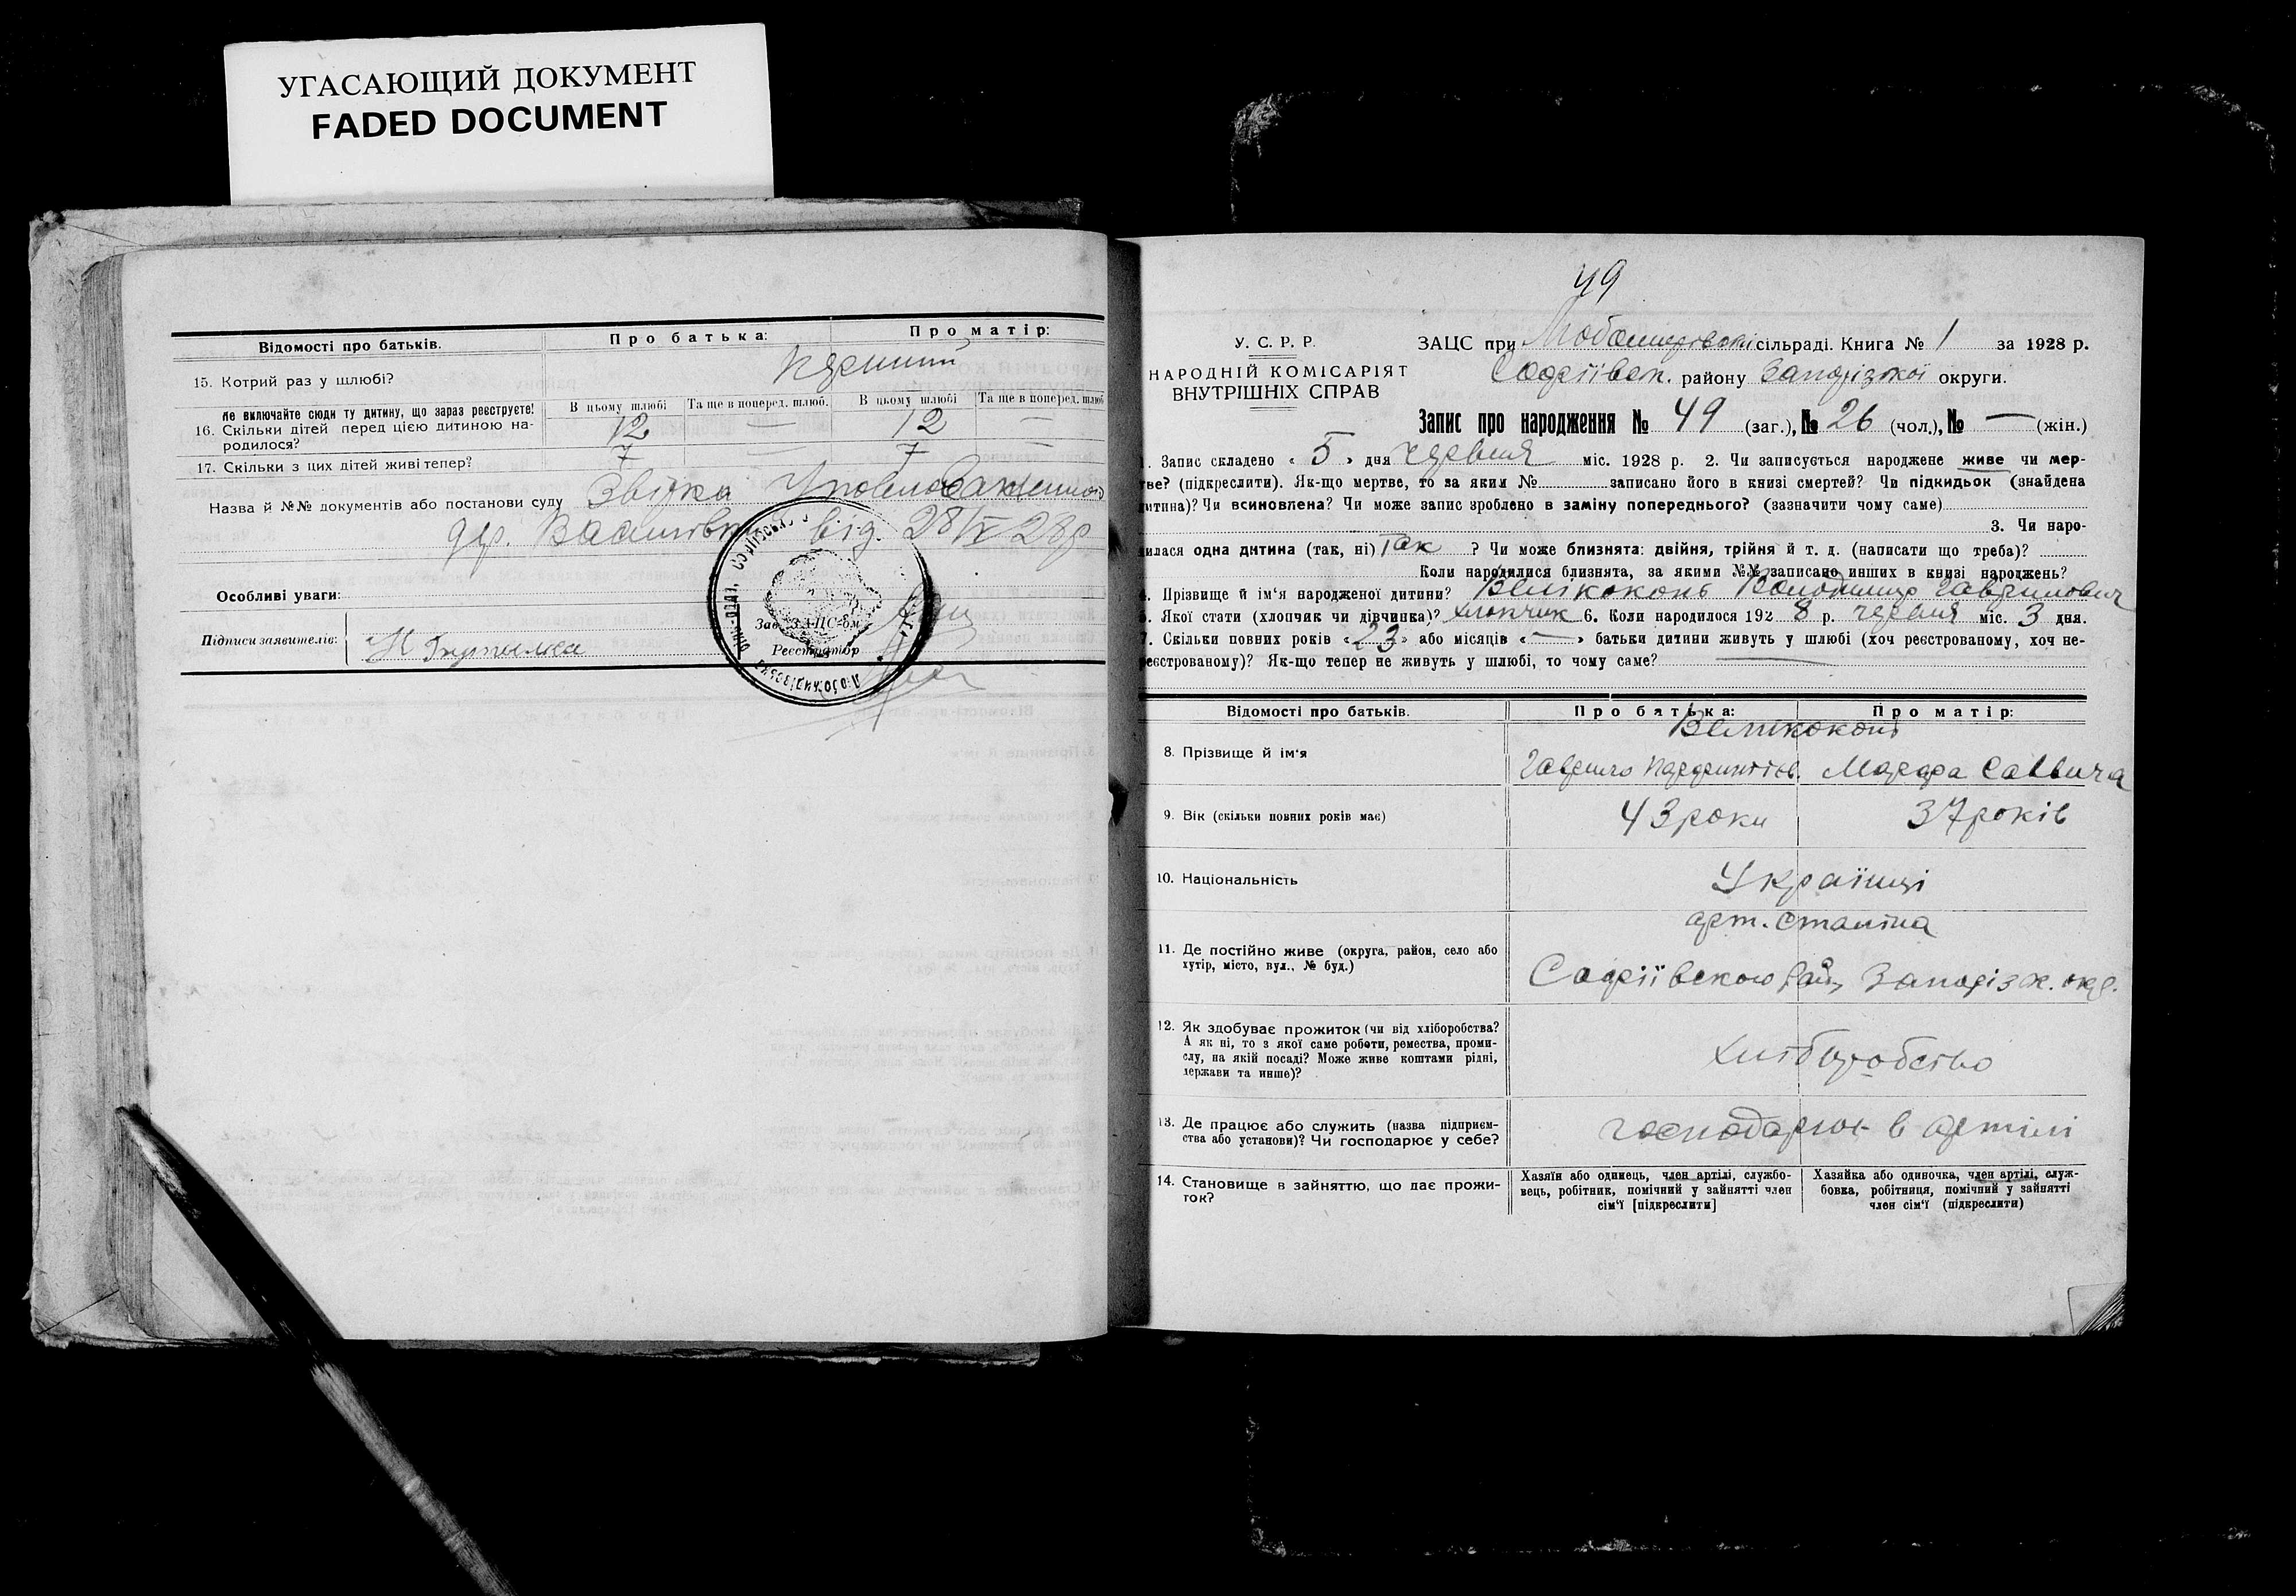 УГАСАЮЩИЙ ДОКУМЕНТ
FADED DOCUMENT
Відомості про батьків.
Про батька:
Про матір:
15. Котрий раз у шлюбі?
Перший
не включайте сюди ту дитину, що зараз реєструєте!
16. Скільки дітей перед цією дитиною на-
родилося?
В цьому шлюбі
Та ще в поперед. шлюб.
В цьому шлюбі
Та ще в поперед. шлюб
12 — 12 —
17. Скільки з цих дітей живі тепер?
7 — 7 —
Назва й №№ документів або постанови суду Звістка Уповноваженного
дер. Василівки від. 28/V 28р
Особливі уваги:
Підписи заявителів:
Зав. ЗАЦС'ом
Реєстратор
49
У. С. Р. Р.
НАРОДНІЙ КОМІСАРІЯТ
ВНУТРІШНІХ СПРАВ
ЗАЦС при сільраді. Книга № 1 за 1928 р.
Софіївск. району Запорізької округи.
Запис про народження № 49 (заг.), № 26 (чол.), № — (жін.)
. Запис складено « 5 » дня червня міс. 1928 р. 2. Чи записується народжене живе чи мер-
тве? (підкреслити). Як-що мертве, то за яким № записано його в книзі смертей? Чи підкидьок (знайдена
дитина)? Чи всиновлена? Чи може запис зроблено в заміну попереднього? (зазначити чому саме)
3. Чи наро-
дилася одна дитина (так, ні) Так ? Чи може близнята: двійня, трійня й т. д. (написати що треба)?
Коли народилися близнята, за якими №№ записано инших в книзі народжень?
4. Прізвище й ім'я народженої дитини? Великоконь Володимир Гаврилович
5. Якої стати (хлопчик чи дівчинка)? хлопчик 6. Коли народилося 192 8 р. червня міс. 3 дня.
7. Скільки повних років « 23 » або місяців « — » батьки дитини живуть у шлюбі (хоч реєстрованому, хоч не-
реєстрованому)? Як-що тепер не живуть у шлюбі, то чому саме? —
Відомості про батьків.
Про батька:
Про матір:
Великоконь
8. Прізвище й ім'я
Гаврило
Марфа Саввича
9. Вік (скільки повних років має)
43 роки
37 років
10. Національність
Українці
11. Де постійно живе (округа, район, село або
хутір, місто, вул., № буд.)
арт. Сталіна
Софіївского рай, Запорізьк. окр.
12. Як здобуває прожиток (чи від хліборобства?
А як ні, то з якої саме роботи, ремества, проми-
слу, на якій посаді? Може живе коштами рідні,
держави та инше)?
хліборобство
13. Де працює або служить (назва підприєм-
ства або установи)? Чи господарює у себе?
господарює в артілі
14. Становище в зайняттю, що дає прожи-
ток?
Хазяїн або одинець, член артілі, службо-
вець, робітник, помічний у зайнятті член
сім'ї [підкреслити]
Хазяйка або одиночка, член артілі, служ-
бовка, робітниця, помічний у зайнятті
член сім'ї (підкреслити)